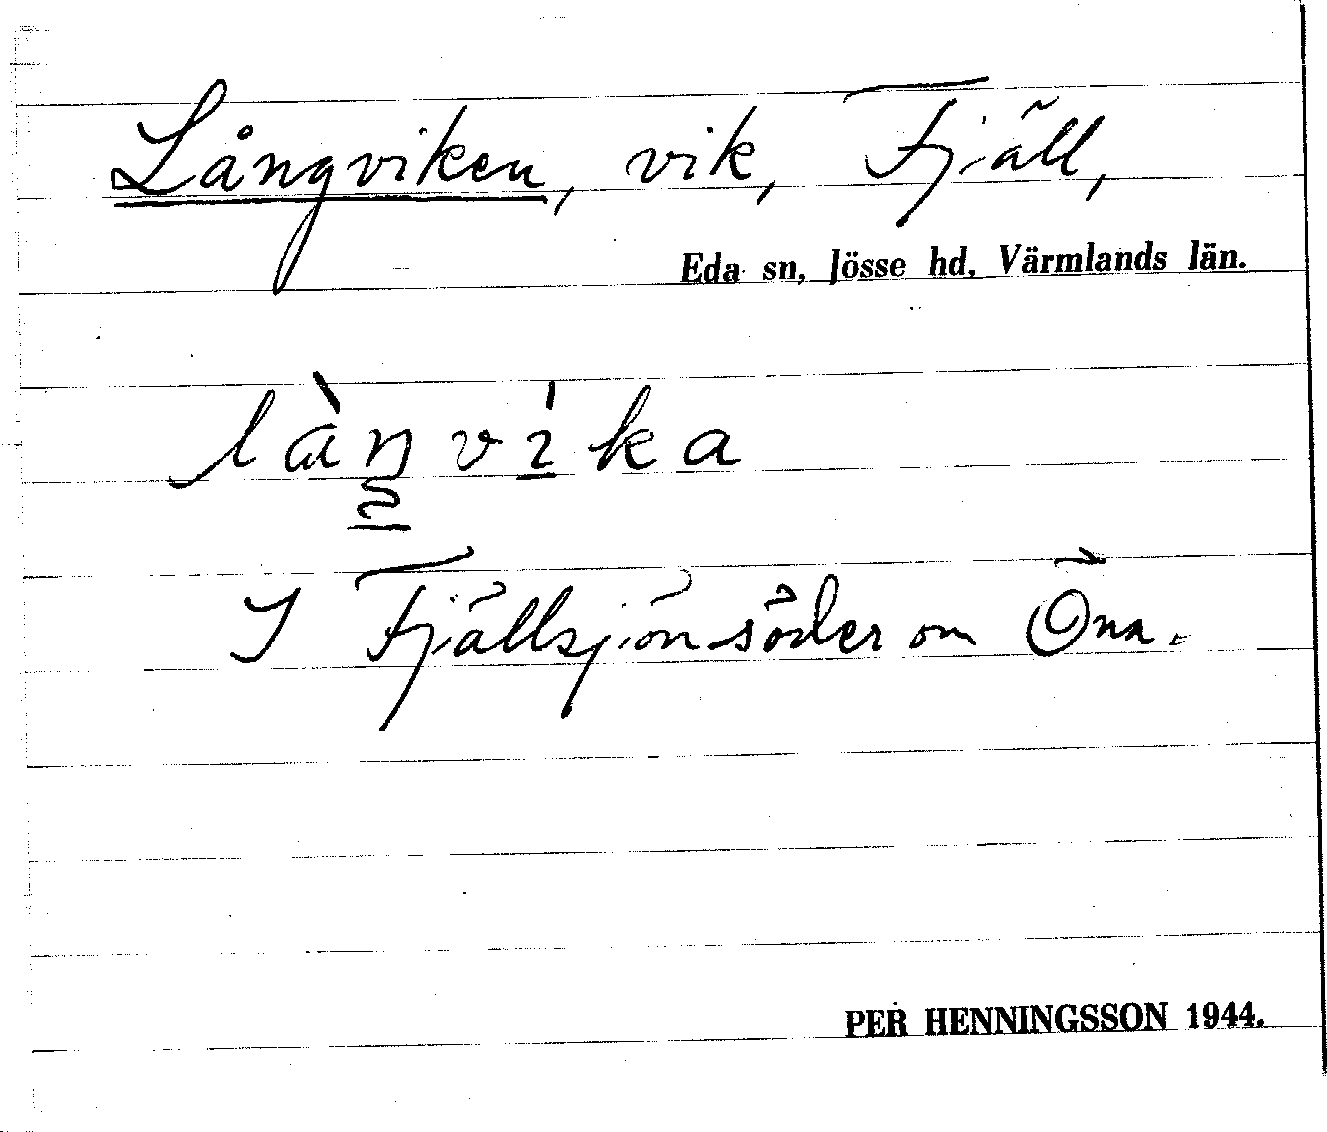 Långviken, vik, Fjäll,
Eda sn, Jösse hd, Värmlands län.
làŋvika
I Fjällsjön söder om Öna.
PER HENNINGSSON 1944.